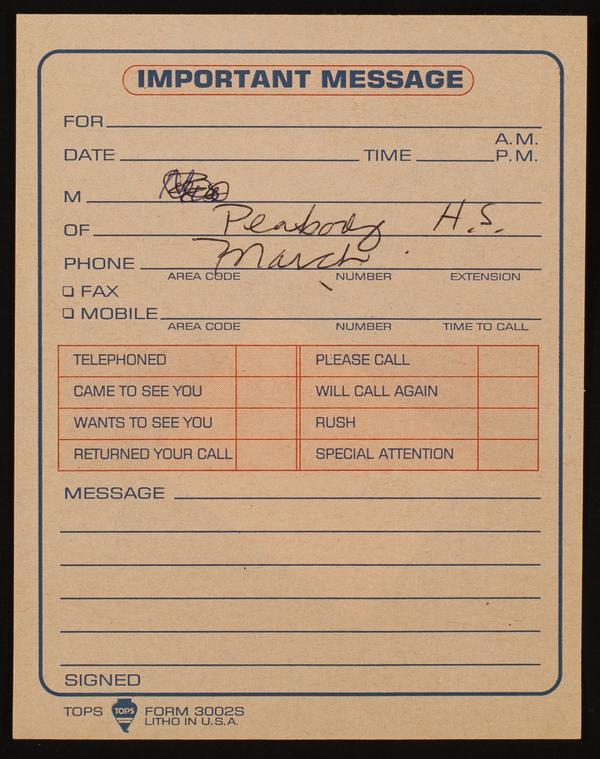 IMPORTANT MESSAGE
FOR
A.M.
DATE TIME P.M.
M
OF Peabody H.S.
PHONE March
AREA CODE NUMBER EXTENSION
FAX
MOBILE
AREA CODE NUMBER TIME TO CALL
TELEPHONED PLEASE CALL
CAME TO SEE YOU WILL CALL AGAIN
WANTS TO SEE YOU RUSH
RETURNED YOUR CALL SPECIAL ATTENTION
MESSAGE
SIGNED
TOPS TOPS FORM 3002S
LITHO IN U.S.A.